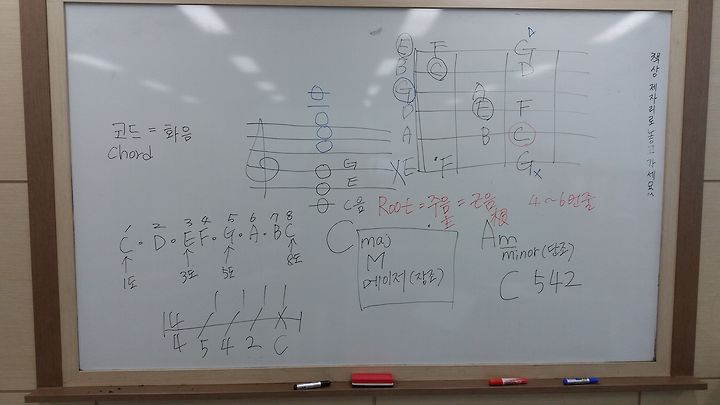 코드 = 화음
Chord
G
E
C음
E F G
B C D
G A
D E F
A B C
X E F G x
Root = 주음 = 근음 4~6번줄
주 根
1 2 3 4 5 6 7 8
C · D · E F · G · A · B C
1도 3도 5도 8도
4
4 5 4 2 C
C maj
M
메이저 (장조)
Am
minor (단조)
C 542
책상 제자리로 놓고 가세요